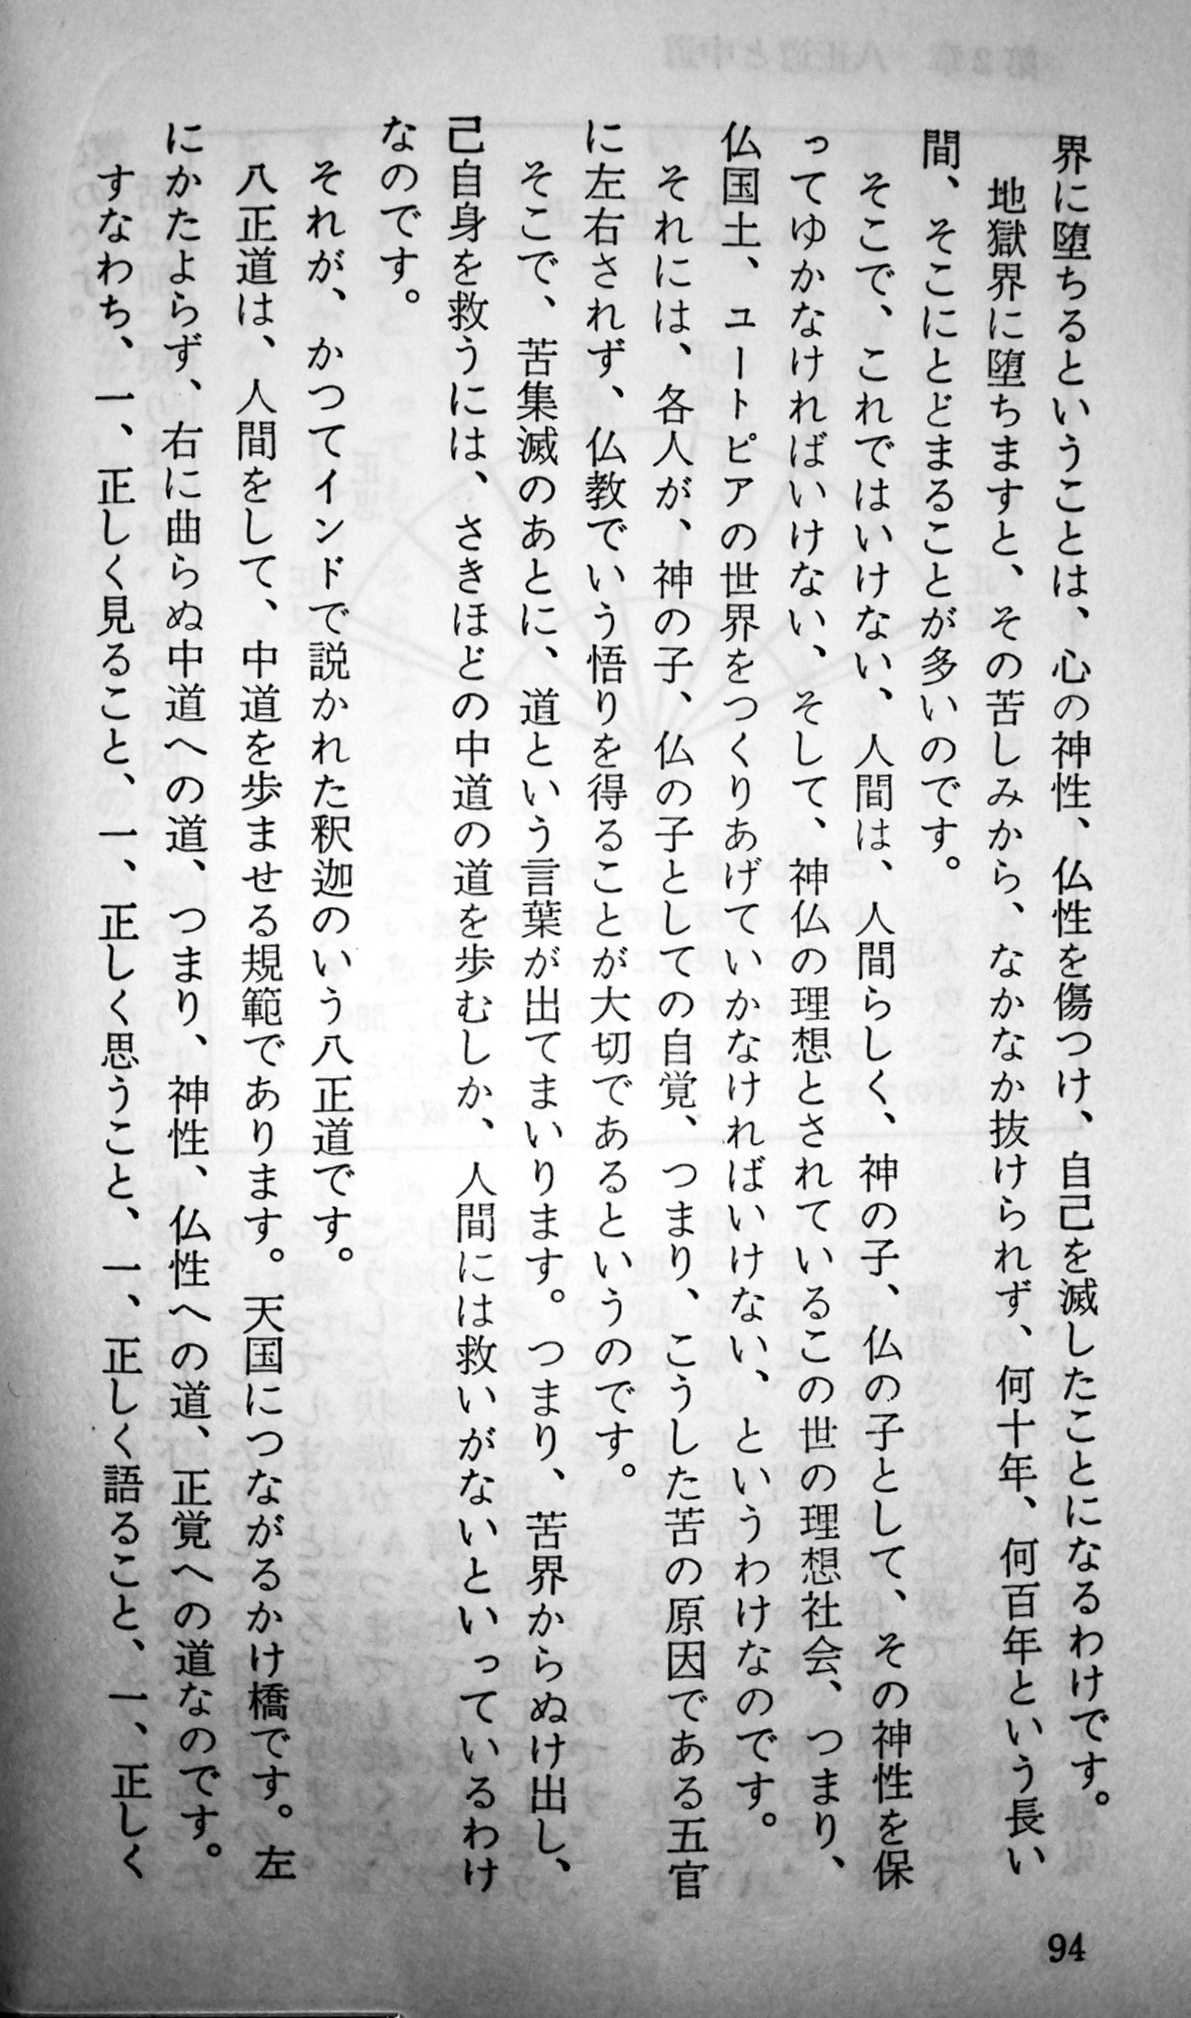 界に堕ちるということは、心の神性、仏性を傷つけ、自己を滅したことになるわけです。
地獄界に堕ちますと、その苦しみから、なかなか抜けられず、何十年、何百年という長い
間、そこにとどまることが多いのです。
そこで、これではいけない、人間は、人間らしく、神の子、仏の子として、その神性を保
ってゆかなければいけない、そして、神仏の理想とされているこの世の理想社会、つまり、
仏国土、ユートピアの世界をつくりあげていかなければいけない、というわけなのです。
それには、各人が、神の子、仏の子としての自覚、つまり、こうした苦の原因である五官
に左右されず、仏教でいう悟りを得ることが大切であるというのです。
そこで、苦集滅のあとに、道という言葉が出てまいります。つまり、苦界からぬけ出し、
己自身を救うには、さきほどの中道の道を歩むしか、人間には救いがないといっているわけ
なのです。
それが、かつてインドで説かれた釈迦のいう八正道です。
八正道は、人間をして、中道を歩ませる規範であります。天国につながるかけ橋です。左
にかたよらず、右に曲らぬ中道への道、つまり、神性、仏性への道、正覚への道なのです。
すなわち、一、正しく見ること、一、正しく思うこと、一、正しく語ること、一、正しく
94